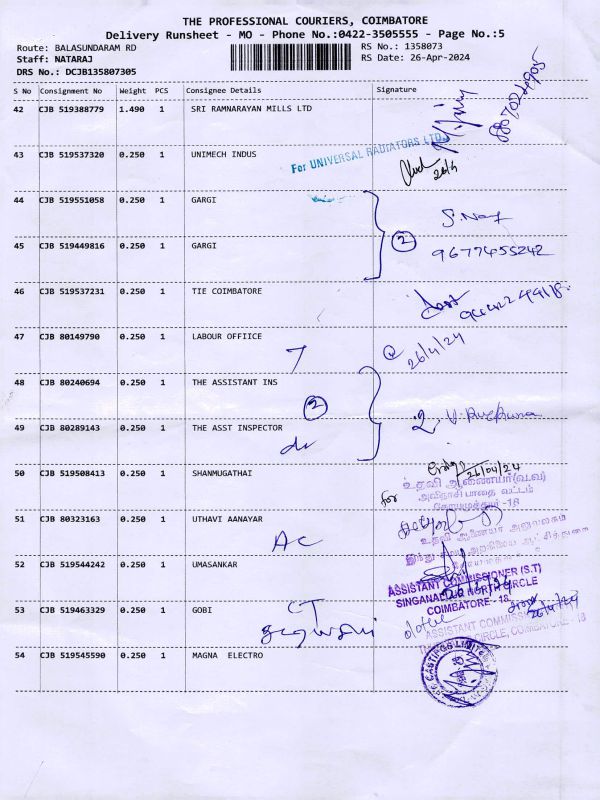 THE PROFESSIONAL COURIERS, COIMBATORE
Delivery Runsheet - MO - Phone No.:0422-3505555 - Page No.:5
Route: BALASUNDARAM RD RS No.: 1358073
Staff: NATARAJ RS Date: 26-Apr-2024
DRS No.: DCJB135807305
S No Consignment No Weight PCS Consignee Details Signature
42 CJB 519388779 1.490 1 SRI RAMNARAYAN MILLS LTD
43 CJB 519537320 0.250 1 UNIMECH INDUS
For UNIVERSAL RADIATORS LTD.
26/4
44 CJB 519551058 0.250 1 GARGI
45 CJB 519449816 0.250 1 GARGI
2
9677455242
46 CJB 519537231 0.250 1 TIE COIMBATORE
47 CJB 80149790 0.250 1 LABOUR OFFIICE
7
26/4/24
48 CJB 80240694 0.250 1 THE ASSISTANT INS
2
49 CJB 80289143 0.250 1 THE ASST INSPECTOR
50 CJB 519508413 0.250 1 SHANMUGATHAI
26/04/24
for
உதவி ஆணையர்(வ.வ)
அவிநாசி பாதை வட்டம்
கோயமுத்தூர் -18
51 CJB 80323163 0.250 1 UTHAVI AANAYAR
AC
52 CJB 519544242 0.250 1 UMASANKAR
ASSISTANT COMMISSIONER (S.T)
SINGANALLUR NORTH CIRCLE
COIMBATORE - 18.
53 CJB 519463329 0.250 1 GOBI
CT
26/4/24
54 CJB 519545590 0.250 1 MAGNA ELECTRO